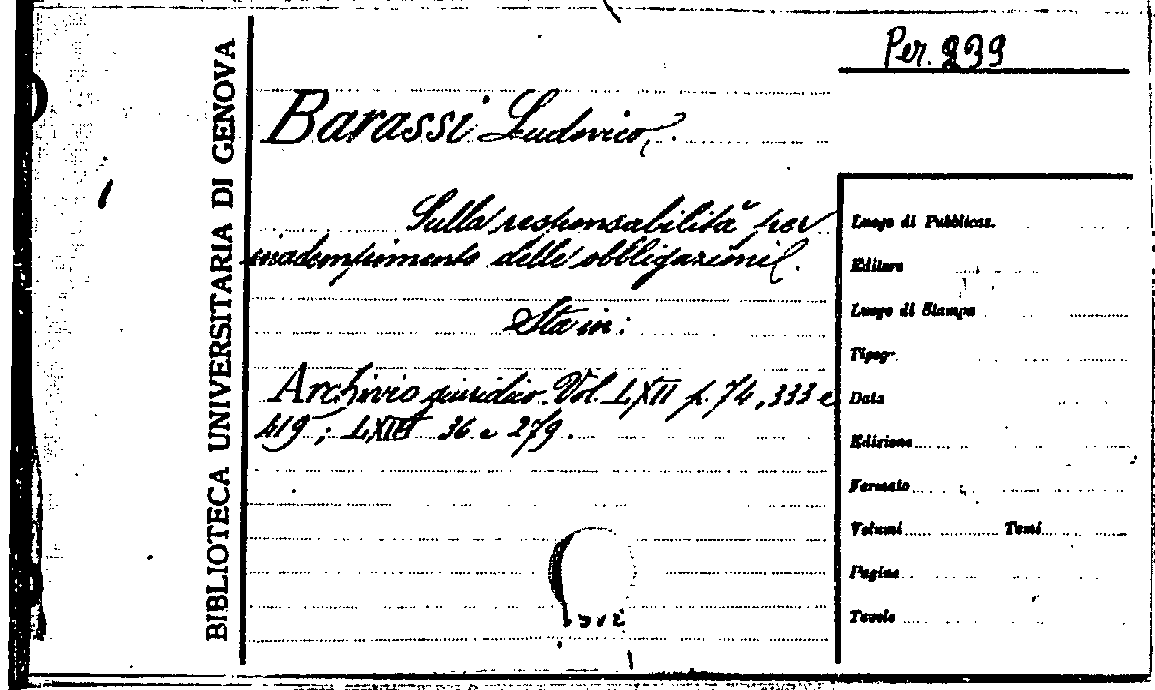 BIBLIOTECA UNIVERSITARIA DI GENOVA
Per. 239
Barassi Ludovico.
Sulla responsabilità per
inadempimento delle obbligazioni.
Sta in:
Archivio giuridico. Vol. LXII p. 74, 333 e
419; LXIII 36 e 279.
Luogo di Pubblicaz.
Editore
Luogo di Stampa
Tipogr.
Data
Edizione
Formato
Volumi Tomi
Pagine
Tavole